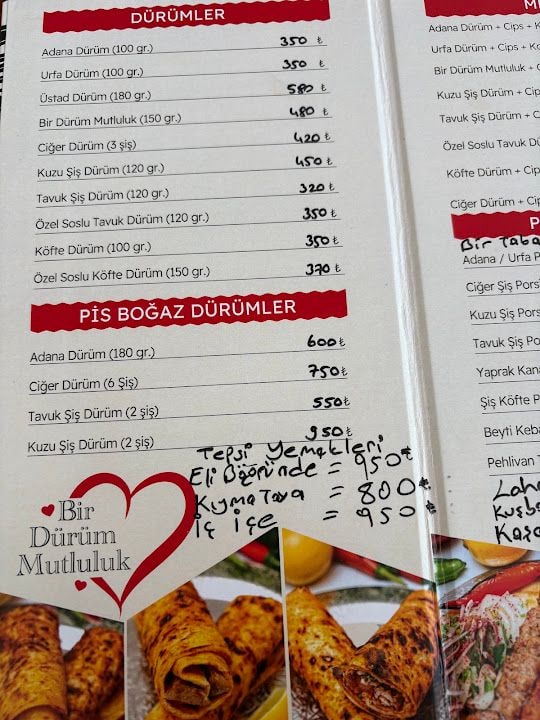 DÜRÜMLER
Adana Dürüm (100 gr.) 350 ₺
Urfa Dürüm (100 gr.) 350 ₺
Üstad Dürüm (180 gr.) 580 ₺
Bir Dürüm Mutluluk (150 gr.) 480 ₺
Ciğer Dürüm (3 şiş) 420 ₺
Kuzu Şiş Dürüm (120 gr.) 450 ₺
Tavuk Şiş Dürüm (120 gr.) 320 ₺
Özel Soslu Tavuk Dürüm (120 gr.) 350 ₺
Köfte Dürüm (100 gr.) 350 ₺
Özel Soslu Köfte Dürüm (150 gr.) 370 ₺
PİS BOĞAZ DÜRÜMLER
Adana Dürüm (180 gr.) 600 ₺
Ciğer Dürüm (6 Şiş) 750 ₺
Tavuk Şiş Dürüm (2 şiş) 550 ₺
Kuzu Şiş Dürüm (2 şiş) 950 ₺
Tepsi Yemekleri
Eli Böğründe = 950 ₺
Kıyma Tava = 800 ₺
İç içe = 950 ₺
Bir
Dürüm
Mutluluk
Adana Dürüm + Cips + K
Urfa Dürüm + Cips + Ko
Bir Dürüm Mutluluk + C
Kuzu Şiş Dürüm + Cip
Tavuk Şiş Dürüm + C
Özel Soslu Tavuk Dü
Köfte Dürüm + Cip
Ciğer Dürüm + Cip
P
Bir Taba
Adana / Urfa P
Ciğer Şiş Pors
Kuzu Şiş Pors
Tavuk Şiş Po
Yaprak Kana
Şiş Köfte P
Beyti Keba
Pehlivan T
Lahm
Kuşba
Kaşa